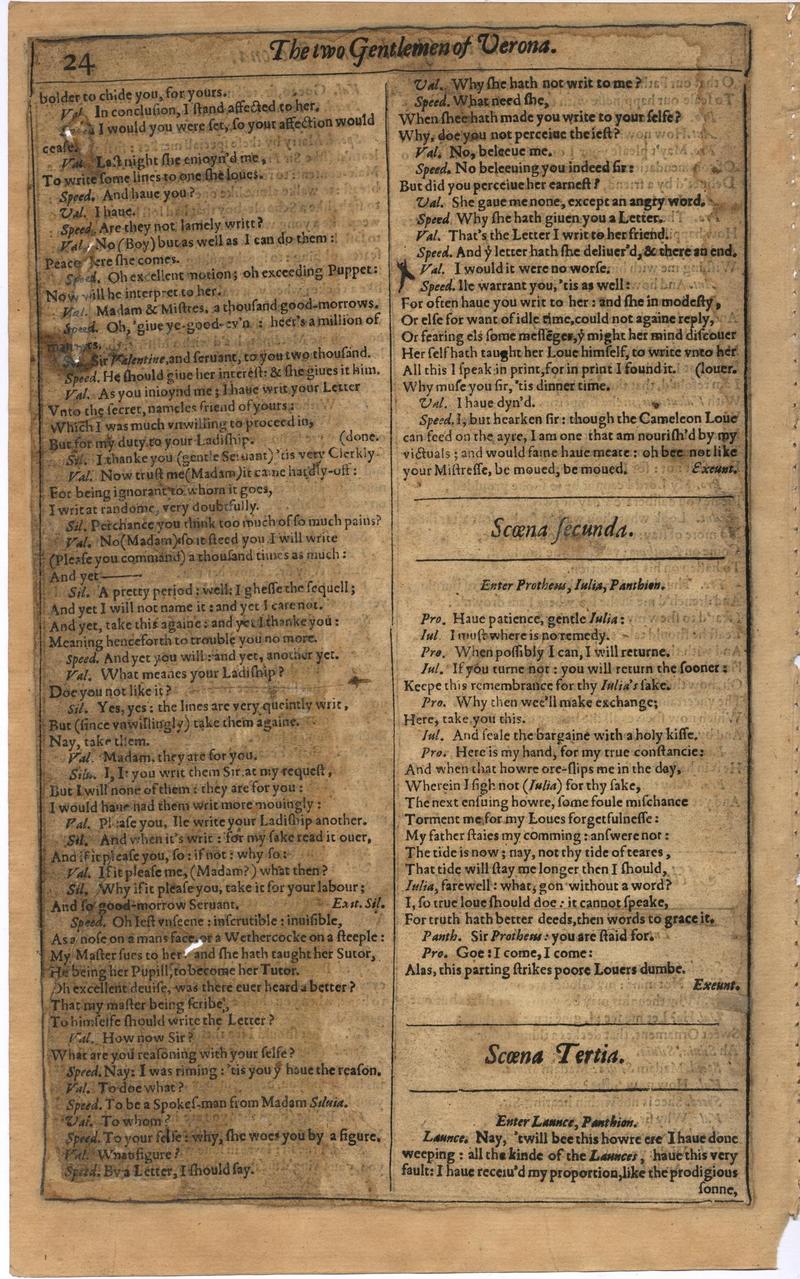 24
The two Gentlemen of Verona.
bolder to chide you, for yours.
Val. In conclusion, I stand affected to her.
I would you were set, so your affection would
cease.
Val. Last night she enioyn'd me,
To write some lines to one she loues.
Speed. And haue you?
Val. I haue.
Speed. Are they not lamely writt?
Val. No (Boy) but as well as I can do them:
Peace here she comes.
Speed. Oh excellent motion; oh exceeding Puppet:
Now will he interpret to her.
Val. Madam & Mistres, a thousand good-morrows.
Speed. Oh, 'giue ye-good-ev'n: heer's a million of
manners.
Sir Valentine, and seruant, to you two thousand.
Speed. He should giue her interest: & she giues it him.
Val. As you inioynd me; I haue writ your Letter
Vnto the secret, nameles friend of yours:
Which I was much vnwilling to proceed in,
But for my duty to your Ladiship. (done.
Sil. I thanke you (gentle Seruant) 'tis very Clerkly-
Val. Now trust me (Madam) it came hardly-off:
For being ignorant to whom it goes,
I writ at randome, very doubtfully.
Sil. Perchance you think too much of so much pains?
Val. No (Madam) so it steed you, I will write
(Please you command) a thousand times as much:
And yet——
Sil. A pretty period: well: I ghesse the sequell;
And yet I will not name it: and yet I care not.
And yet, take this againe: and yet I thanke you:
Meaning henceforth to trouble you no more.
Speed. And yet you will: and yet, another yet.
Val. What meanes your Ladiship?
Doe you not like it?
Sil. Yes, yes: the lines are very queintly writ,
But (since vnwillingly) take them againe.
Nay, take them.
Val. Madam, they are for you.
Silu. I, I: you writ them Sir, at my request,
But I will none of them: they are for you:
I would haue had them writ more mouingly:
Val. Please you, Ile write your Ladiship another.
Sil. And when it's writ: for my sake read it ouer,
And if it please you, so: if not: why so:
Val. If it please me, (Madam?) what then?
Sil. Why if it please you, take it for your labour;
And so good-morrow Seruant. Exit. Sil.
Speed. Oh Iest vnseene: inscrutible: inuisible,
As a nose on a mans face, or a Wethercocke on a steeple:
My Master sues to her: and she hath taught her Sutor,
He being her Pupill, to become her Tutor.
Oh excellent deuise, was there euer heard a better?
That my master being scribe,
To himselfe should write the Letter?
Val. How now Sir?
What are you reasoning with your selfe?
Speed. Nay: I was riming: 'tis you ẏ haue the reason.
Val. To doe what?
Speed. To be a Spokes-man from Madam Siluia.
Val. To whom?
Speed. To your selfe: why, she woes you by a figure.
Val. What figure?
Speed. By a Letter, I should say.
Val. Why she hath not writ to me?
Speed. What need she,
When shee hath made you write to your selfe?
Why, doe you not perceiue the iest?
Val. No, beleeue me.
Speed. No beleeuing you indeed sir:
But did you perceiue her earnest?
Val. She gaue me none, except an angry word.
Speed Why she hath giuen you a Letter.
Val. That's the Letter I writ to her friend.
Speed. And ẏ letter hath she deliuer'd, & there an end.
Val. I would it were no worse.
Speed. Ile warrant you, 'tis as well:
For often haue you writ to her: and she in modesty,
Or else for want of idle time, could not againe reply,
Or fearing els some messẽger, ẏ might her mind discouer
Her self hath taught her Loue himself, to write vnto her
All this I speak in print, for in print I found it. (louer.
Why muse you sir, 'tis dinner time.
Val. I haue dyn'd.
Speed. I, but hearken sir: though the Cameleon Loue
can feed on the ayre, I am one that am nourish'd by my
victuals; and would faine haue meate: oh bee not like
your Mistresse, be moued, be moued. Exeunt.
Scœna secunda.
Enter Protheus, Iulia, Panthion.
Pro. Haue patience, gentle Iulia:
Iul I must where is no remedy.
Pro. When possibly I can, I will returne.
Iul. If you turne not: you will return the sooner:
Keepe this remembrance for thy Iulia's sake.
Pro. Why then wee'll make exchange;
Here, take you this.
Iul. And seale the bargaine with a holy kisse.
Pro. Here is my hand, for my true constancie:
And when that howre ore-slips me in the day,
Wherein I sigh not (Iulia) for thy sake,
The next ensuing howre, some foule mischance
Torment me for my Loues forgetfulnesse:
My father staies my comming: answere not:
The tide is now; nay, not thy tide of teares,
That tide will stay me longer then I should,
Iulia, farewell: what, gon without a word?
I, so true loue should doe: it cannot speake,
For truth hath better deeds, then words to grace it.
Panth. Sir Protheus: you are staid for.
Pro. Goe: I come, I come:
Alas, this parting strikes poore Louers dumbe.
Exeunt.
Scœna Tertia.
Enter Launce, Panthion.
Launce. Nay, 'twill bee this howre ere I haue done
weeping: all the kinde of the Launces, haue this very
fault: I haue receiu'd my proportion, like the prodigious
sonne,